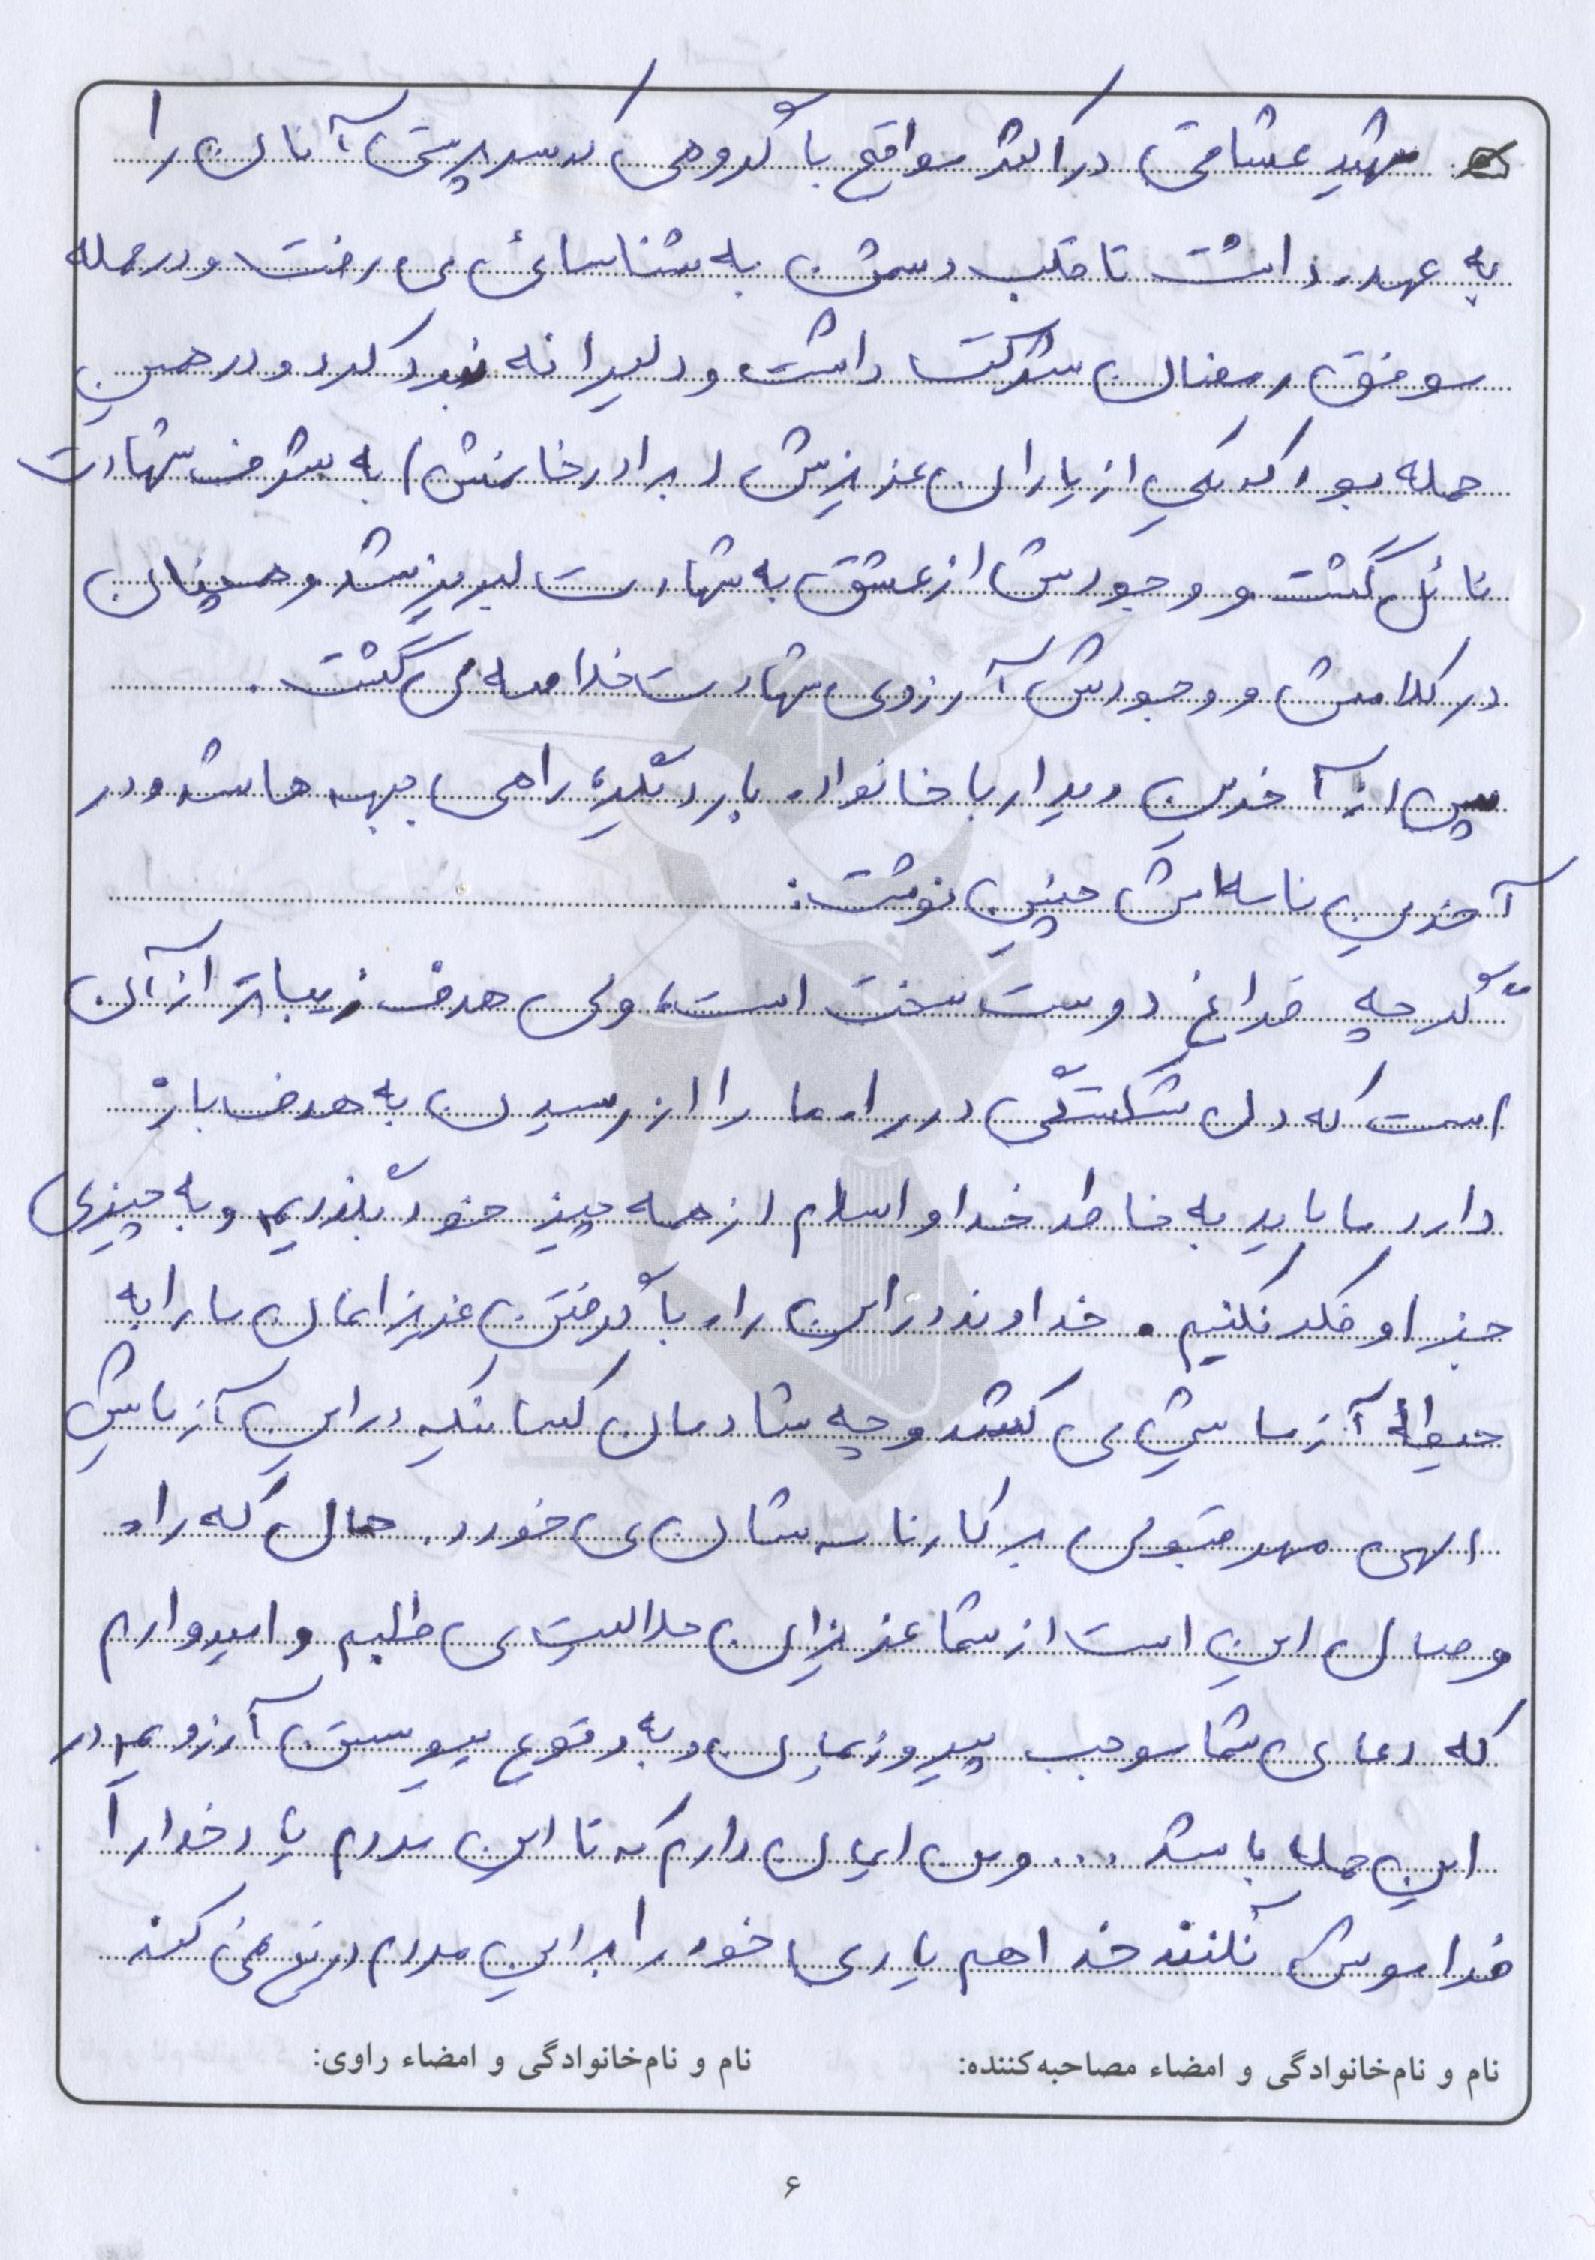 شهید عشاقی در اکثر مواقع با گروهی که سرپرستی آنان را
به عهده داشت تا قلب دشمن به شناسائی می رفت و در حمله
موفق رمضان شرکت داشت و دلیرانه نبرد کرد و در همین
حمله بود که یکی از یاران عزیزش (برادر خانمش) به شرف شهادت
نائل گشت و وجودش از عشق به شهادت لبریز شد و همچنان
در کلامش و وجودش آرزوی شهادت خلاصه می گشت.
پس از آخرین دیدار با خانواده بار دیگر راهی جبهه ها شد و در
آخرین نامه اش چنین نوشت:
"گرچه فراغ دوست سخت است، ولی هدف زیباتر از آن
است که دل شکستگی در راه ما را از رسیدن به هدف باز
دارد ما باید به خاطر خدا و اسلام از همه چیز خود بگذریم و به چیزی
جز او فکر نکنیم. خداوند در این راه با گرفتن عزیزانمان ما را به
حیطهٔ آزمایش می کشد و چه شادمان کسانیکه در این آزمایش
الهی مهر قبولی بر کارنامه شان می خورد. حال که راه
وصال این است از شما عزیزان حلالیت می طلبم و امیدوارم
که دعای شما موجب پیروزیمان و به وقوع پیوستن آرزویم در
این حمله باشد ... و من ایمان دارم که تا این مردم یاد خدا را
فراموش نکنند خدا هم یاری خود را بر این مردم دریغ نمی کند
نام و نام‌خانوادگی و امضاء مصاحبه‌کننده: نام و نام‌خانوادگی و امضاء راوی:
۶